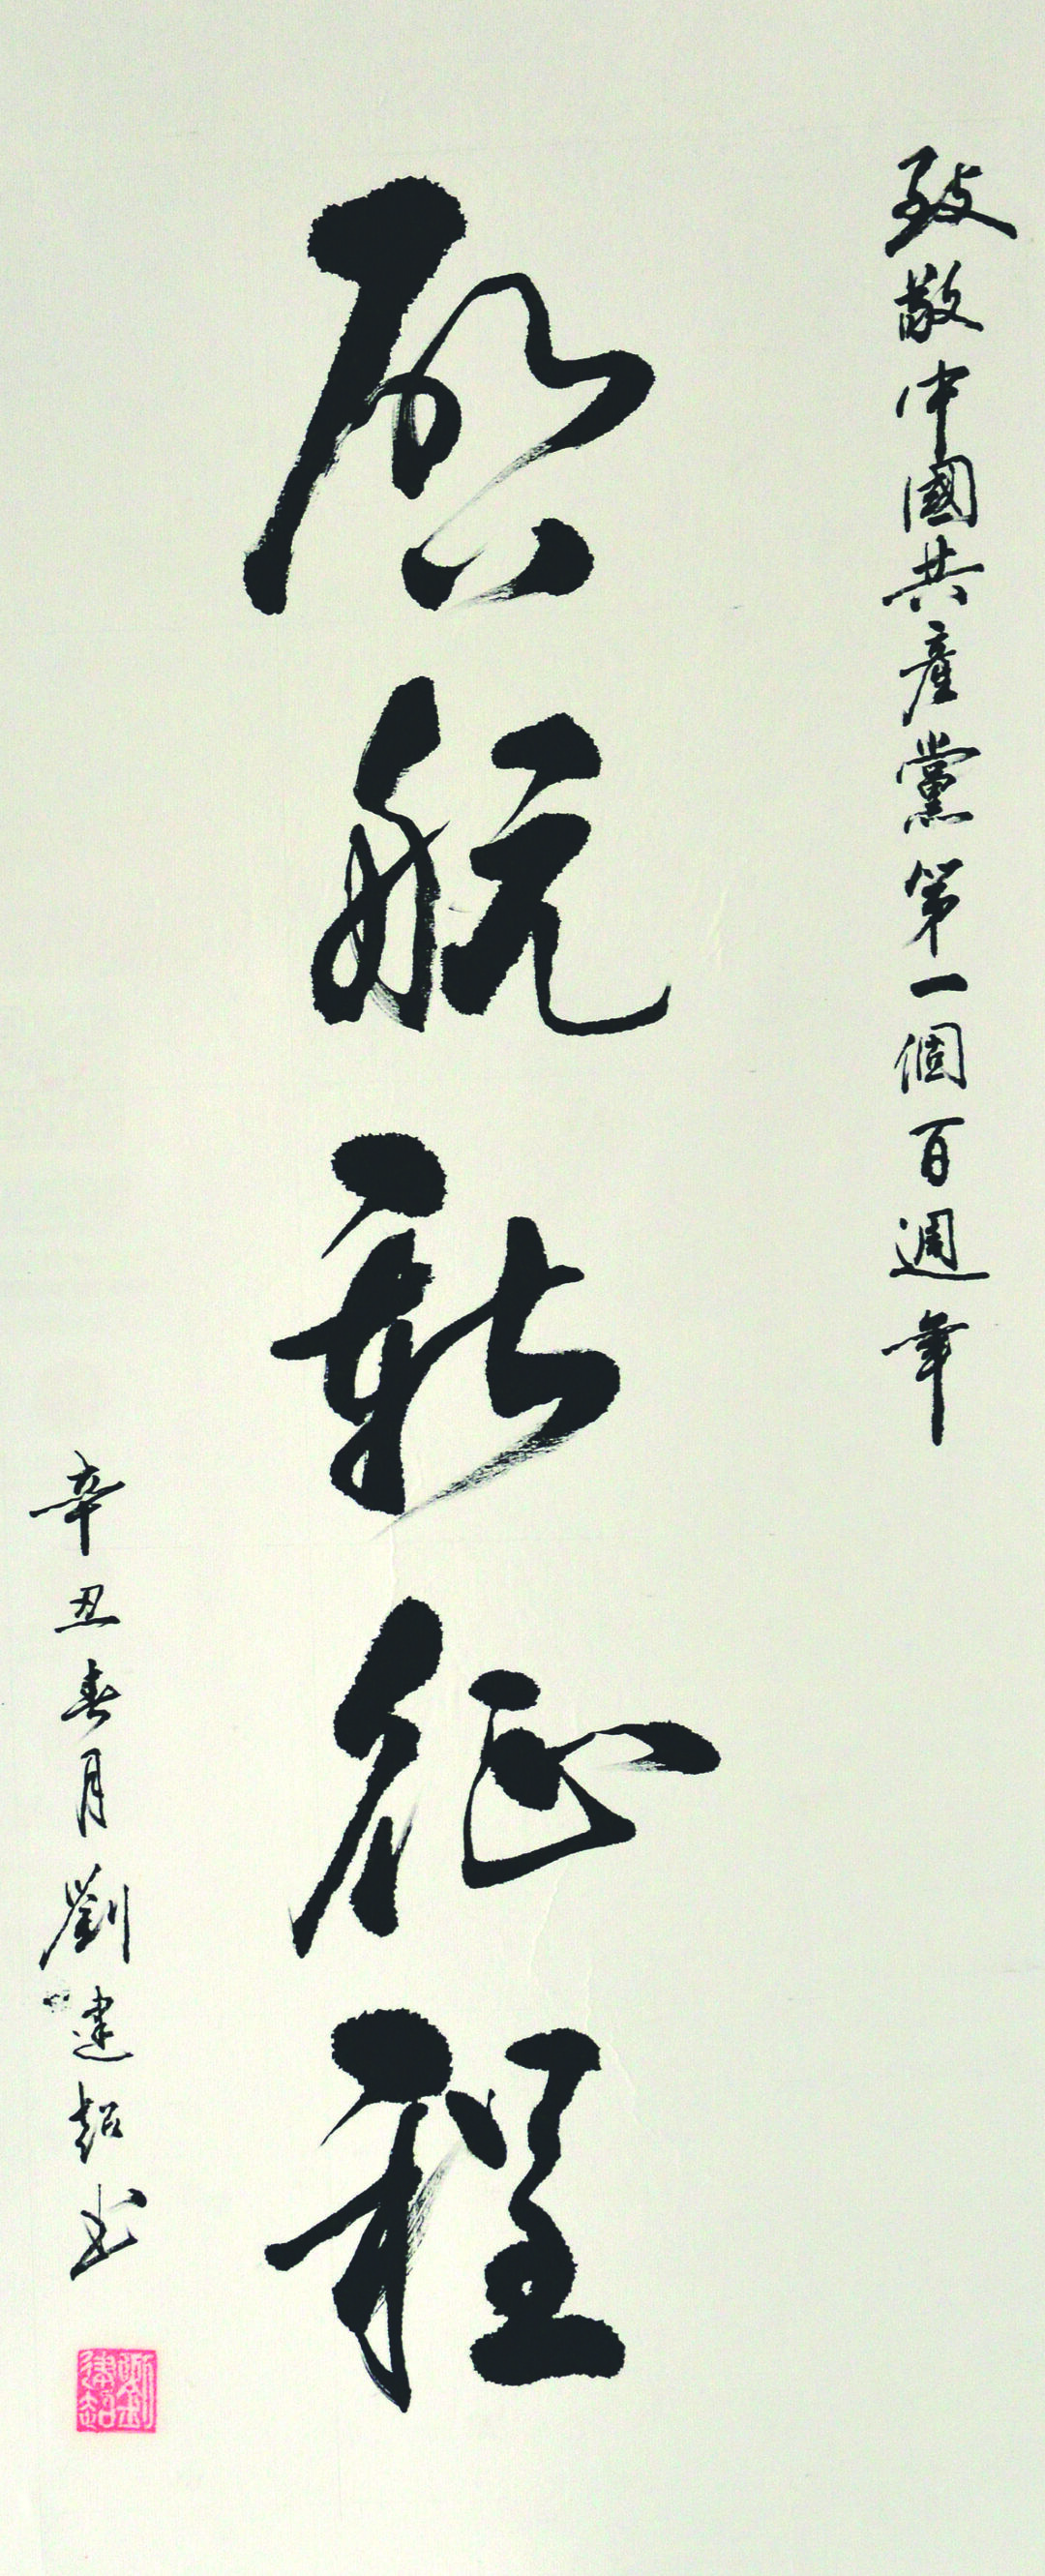 致敬中國共產黨第一個百週年
啟航新征程
辛丑春月劉建超书
劉建超